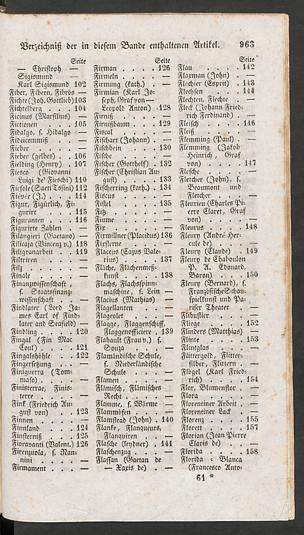 Verzeichniß der in diesem Bande enthaltenen Artikel. 963
Seite
— Christoph —
Sigismund —
Karl Sigismund 102
Fiber, Fibern, Fibrös —
Fichte (Joh. Gottlieb) 103
Fichtelberg . . 104
Ficinus (Marsilius) —
Fictionen . . 105
Fidalgo, s. Hidalgo —
Fideicommiß —
Fieber . . —
Fieber (gelbes) . 106
Fielding (Henry) . 107
Fiesco (Giovanni
Luigi de' Fieschi) 110
Fiesole (Santi Tosini) 112
Fiévée (J.) . . 114
Figur, Figürlich, Fi-
gurirt . . 115
Figuranten . . 116
Figurirte Zahlen —
Filangieri (Gaetano) —
Filicaja (Vincenz v.) 118
Filigranarbeit . 119
Filtriren . . —
Filz . . —
Finale . . —
Finanzwissenschaft,
s. Staatsfinanz-
wissenschaft —
Findlater (Lord Ja-
mes Earl of Find-
later and Seafield) —
Findling . . 120
Fingal (Fin Mac
Coul) . . 121
Fingalshöhle . 122
Fingersetzung . —
Finiguerra (Tom-
maso) . . —
Finisterrae, Finis-
terre . . —
Fink (Friedrich Au-
gust von) . 123
Finnen . . —
Finnland . . 124
Finsterniß . . 125
Fioravanti (Valent.) 126
Firenzuola, s. Nan-
nini . . —
Firmament . . —
Seite
Firman . . 126
Firmeln . . —
Firmung . . —
Firmian (Karl Jo-
seph, Graf von —
Leopold Anton) . 128
Firniß . . —
Firnißbäume . 129
Fiscal . . —
Fischart (Johann) . —
Fischbein . . 130
Fische . . —
Fischer (Gotthelf) . 132
Fischer (Christian Au-
gust) . . 133
Fischerring (kath.) . 134
Fiscus . . —
Fistel . . 135
Fitz . . —
Fiume . . —
Fix . . —
Fixmillner (Placidus) 136
Fixsterne . . —
Flaccus (Cajus Vale-
rius) . . 137
Fläche, Flächenmes-
kunst . . 138
Flachs, Flachsspinn-
maschine, s. Lein —
Flacius (Matthias) —
Flagellanten . —
Flageolet . . —
Flagge, Flaggenschiff,
Flaggenofficiere . 139
Flahault (Frau v.) s.
Souza . . —
Flamändische Schule,
s. Niederländische
Schule . . —
Flamen . . —
Flämisch, Flämisches
Recht . . —
Flamme, s. Wärme —
Flammisten . . —
Flamsteed (John) . 140
Flanke, Flanqueurs,
Flanquiren . —
Flasche (leydner) . 141
Flaschenzug . . —
Flassan (Gaetan de
— Raxis de) . —
Seite
Flau . . 142
Flaxman (John) . —
Flechier (Esprit) . 143
Flechsen . . 144
Flechten, Flechte . —
Fleck (Johann Fried-
rich Ferdinand) . —
Fleisch . . 146
Fleiß . . —
Flemming (Paul) . —
Flemming (Jakob
Heinrich, Graf
von) . . 147
Flesche . . —
Fletcher (John), s.
Beaumont und
Fletcher . . —
Fleurieu (Charles Pi-
erre Claret, Graf
von) . . —
Fleurus . . 148
Fleury (André Her-
cule de) . . —
Fleury (Claude) . 149
Fleury de Chaboulon
P. A. Edouard,
Baron) . . 150
Fleury (Bernard), s.
Französische Schau-
spielkunst und Pa-
riser Theater . —
Flibustier . . —
Fliege . . 152
Flinders (Matthias) —
Flinte . . 153
Flintglas . . —
Flittergold, Flitter-
silber, Flittern . —
Flögel (Karl Fried-
rich) . . 154
Flor, Blumenflor . —
Flora . . —
Florentiner Arbeit . —
Florentiner Lack . —
Florenz . . 155
Florett . . 157
Florian (Jean Pierre
Claris de) . . —
Florida . . 158
Florida-Blanca
(Francesco Anto-
61 *